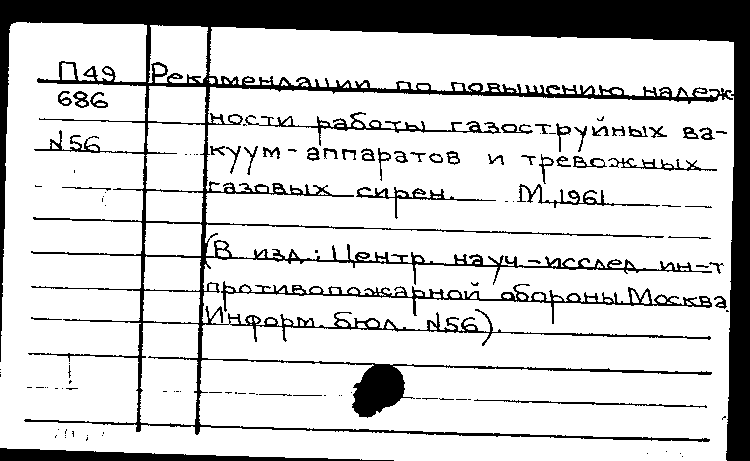 П49 Рекомендации по повышению надеж-
686
ности работы газоструйных ва-
N56 куум-аппаратов и тревожных
газовых сирен. М., 1961
(В изд.: Центр. науч-исслед ин-т
противопожарной обороны. Москва.
Информ. бюл. N56).